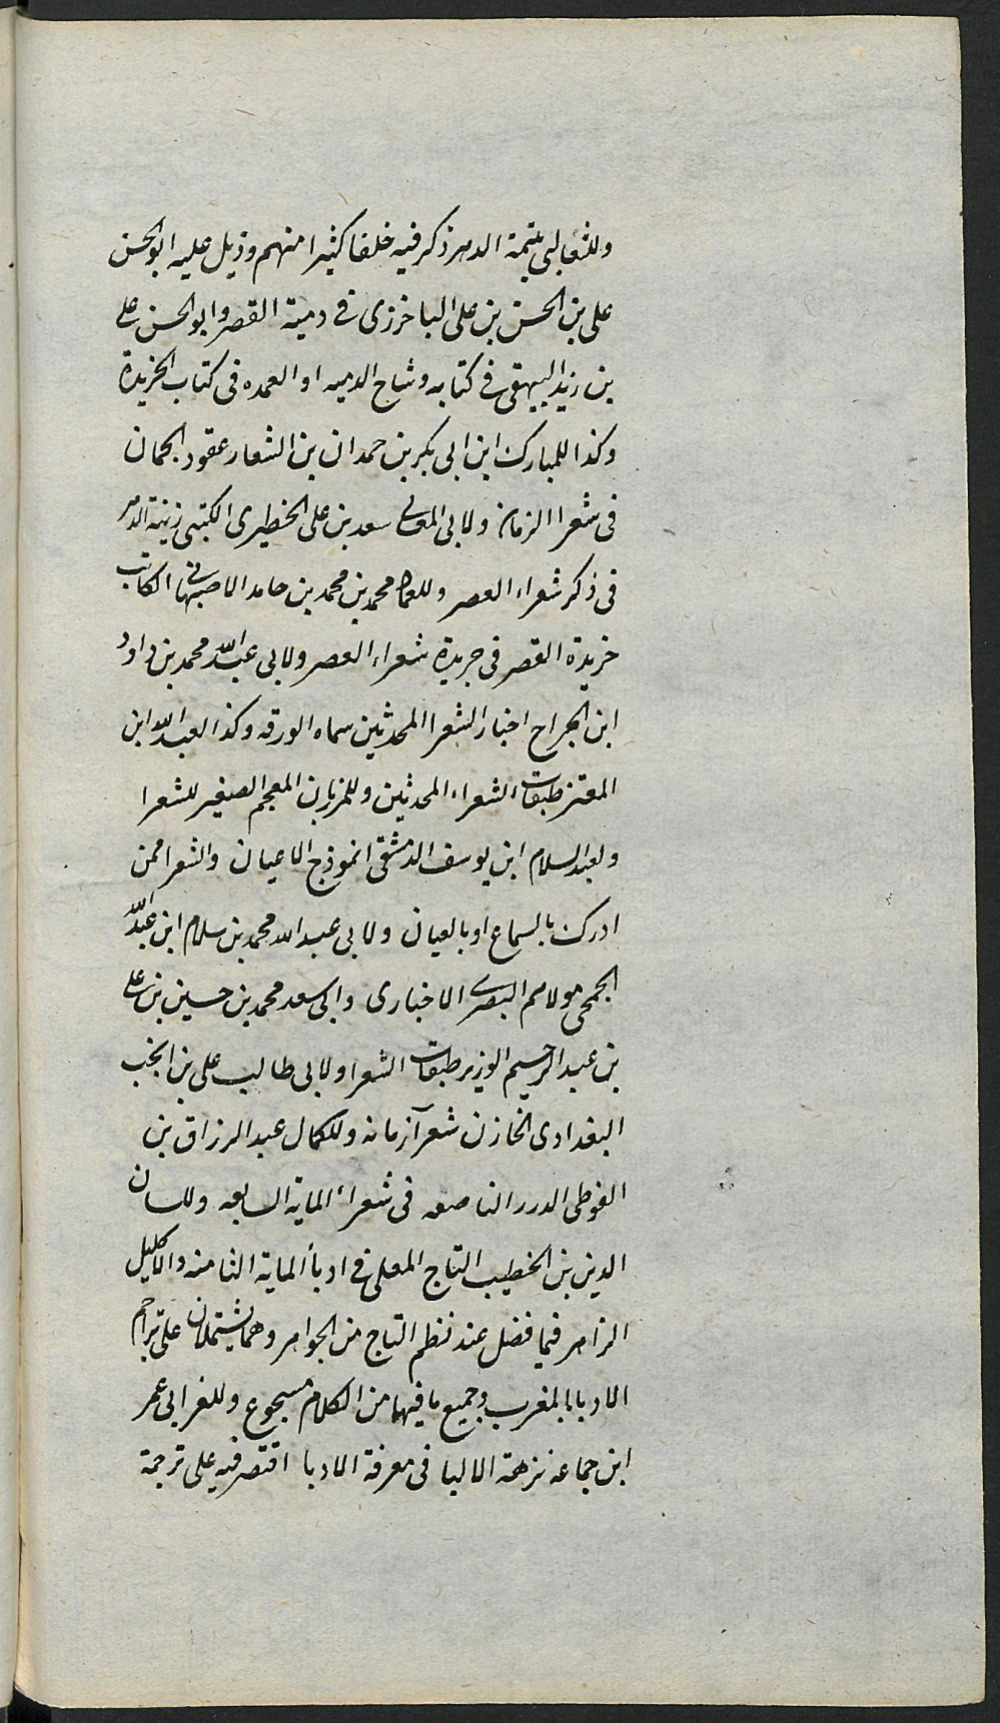 وللثعالبي يتيمة الدهر ذكر فيه خلقا كثيرا منهم وذيل عليه ابو الحسن
على بن الحسن بن على الباخرزى فى دمية القصر وابو الحسن على
بن زيد البيهقى فى كتابه وشاح الدميه او العمده فى كتاب الخريدة
وكذا للمبارك ابن ابى بكر بن حمدان بن الشعار عقود الجمان
فى شعرا الزمان ولابى المعالى سعد بن على الخطيرى الكتبى زينة الدهر
فى ذكر شعراء العصر وللعماد محمد بن محمد بن حامد الاصبهانى الكاتب
خريدة القصر فى جريدة شعراء العصر ولابى عبد الله محمد بن داود
ابن الجراح اخبار الشعرا المحدثين سماه الورقه وكذا لعبد الله ابن
المعتز طبقات الشعراء المحدثين وللمرزبان المعجم الصغير للشعرا
ولعبد السلام ابن يوسف الدمشقى انموذج الاعيان والشعرا ممن
ادرك بالسماع او بالعيان ولابى عبد الله محمد بن سلام ابن عبد الله
الجمحى مولاهم البصرى الاخبارى وابى سعد محمد بن حسين بن على
بن عبد الرحيم الوزير طبقات الشعرا ولابى طالب على بن انجب
البغدادى الخازن شعرآ زمانه وللكمال عبد الرزاق بن
الفوطى الدرر الناصعه فى شعراء الماية السابعه وللسان
الدين بن الخطيب التاج المعلى فى ادبأ الماية الثامنه والاكليل
الزاهر فيما فضل عند نظم التاج من الجواهر وهما يشتملان على تراجم
الادبا بالمغرب وجميع ما فيهما من الكلام مسجوع وللغر ابى عمر
ابن جماعه نزهة الالبا فى معرفة الادبا اقتصر فيه على ترجمة